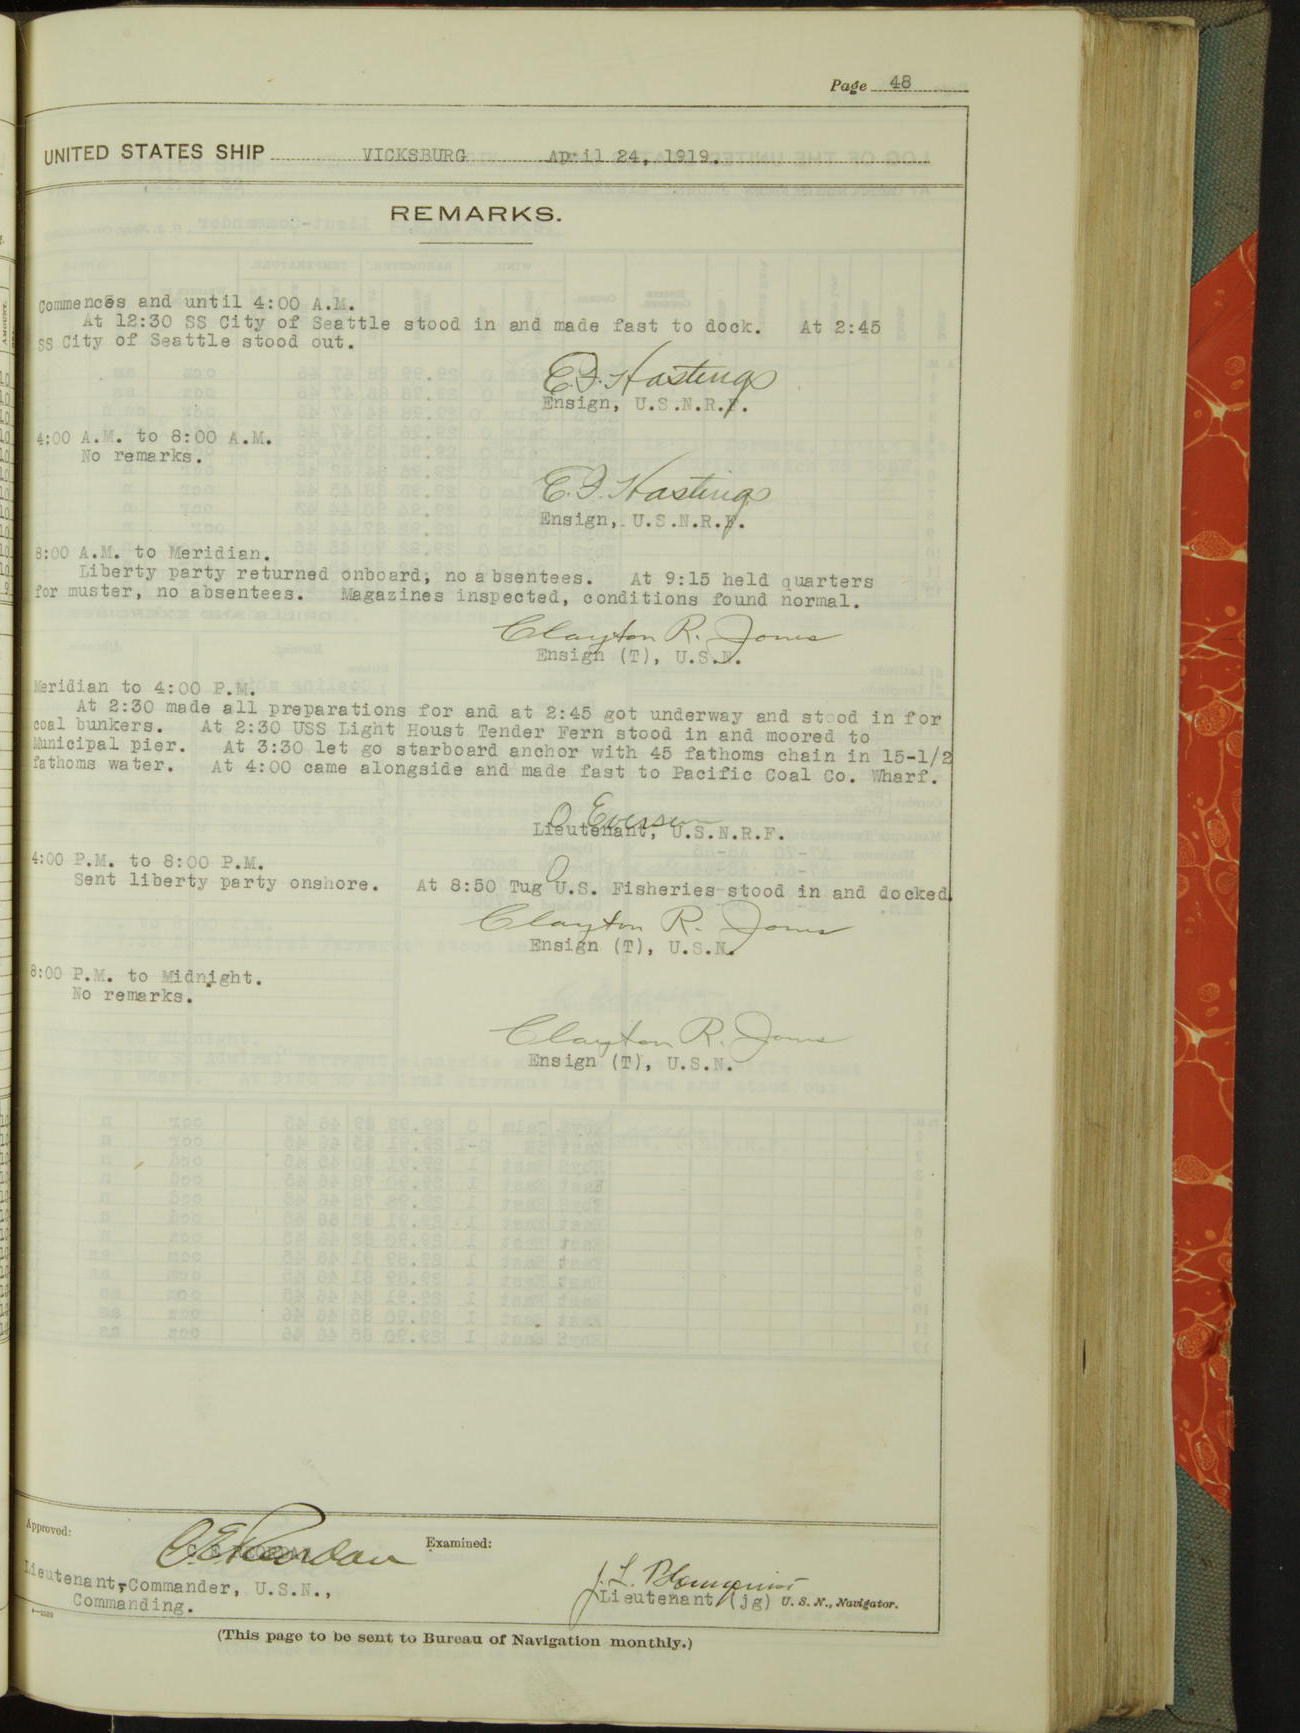 Page 48
UNITED STATES SHIP VICKSBURG April 24, 1919.
REMARKS.
Commences and until 4:00 A.M.
At 12:30 SS City of Seattle stood in and made fast to dock. At 2:45
SS City of Seattle stood out.
E.F. Hastings
Ensign, U.S.N.R.F.
4:00 A.M. to 8:00 A.M.
No remarks.
E.F. Hastings
Ensign, U.S.N.R.F.
8:00 A.M. to Meridian.
Liberty party returned onboard, no absentees. At 9:15 held quarters
for muster, no absentees. Magazines inspected, conditions found normal.
Clayton R. Jones
Ensign (T), U.S.N.
Meridian to 4:00 P.M.
At 2:30 made all preparations for and at 2:45 got underway and stood in for
coal bunkers. At 2:30 USS Light Houst Tender Fern stood in and moored to
Municipal pier. At 3:30 let go starboard anchor with 45 fathoms chain in 15-1/2
fathoms water. At 4:00 came alongside and made fast to Pacific Coal Co. Wharf.
O. Everson
Lieutenant, U.S.N.R.F.
4:00 P.M. to 8:00 P.M.
Sent liberty party onshore. At 8:50 Tug U.S. Fisheries stood in and docked.
Clayton R. Jones
Ensign (T), U.S.N.
8:00 P.M. to Midnight.
No remarks.
Clayton R. Jones
Ensign (T), U.S.N.
Approved:
Examined:
Lieutenant-Commander, U.S.N.,
Commanding.
J. L.
Lieutenant (jg) U. S. N., Navigator.
(This page to be sent to Bureau of Navigation monthly.)